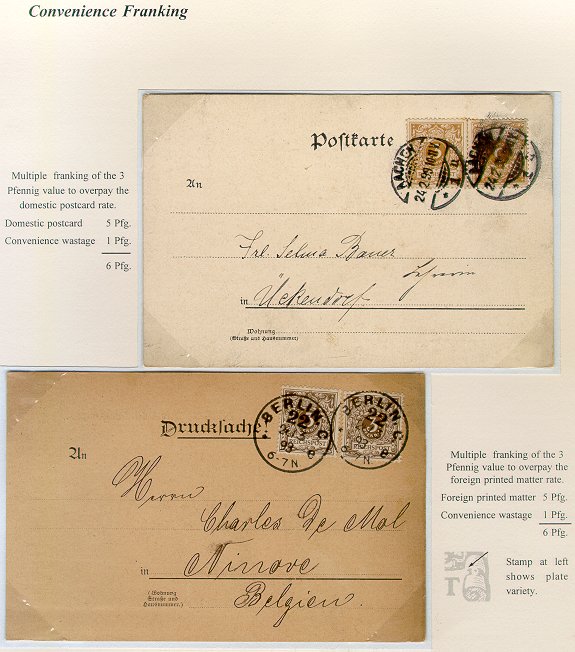 Convenience Franking
Multiple franking of the 3
Pfennig value to overpay the
domestic postcard rate.
Domestic postcard 5 Pfg.
Convenience wastage 1 Pfg.
6 Pfg.
Postkarte
AACHEN
24.2.99
AACHEN
24.2
An
Frl. Selma Bauer
Lehrerin
in Ückendorf
Wohnung
(Straße und Hausnummer)
Drucksache!
BERLIN. C.
22
93
6-7N
8
BERLIN. C.
22
93
N.
8
REICHSPOST
An
Herrn
Charles De Mol
in Ninove
(Wohnung
Straße und
Hausnummer.)
Belgien.
Multiple franking of the 3
Pfennig value to overpay the
foreign printed matter rate.
Foreign printed matter 5 Pfg.
Convenience wastage 1 Pfg.
6 Pfg.
T
Stamp at left
shows plate
variety.